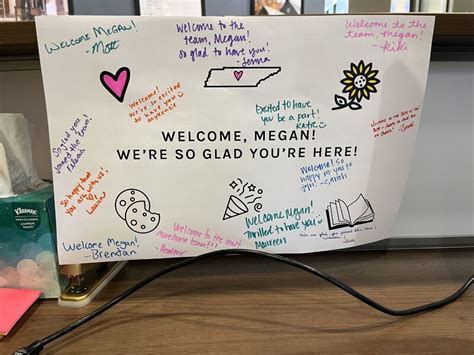 WELCOME MEGAN!
-Matt
Welcome to the
team, Megan!
so glad to have you!
-Jenna
Welcome to the
team, Megan!
-Kiki
Welcome!
we're so excited
to have you
Excited to have
you be a part!
Katie
So glad you
joined the team!
WELCOME, MEGAN!
WE'RE SO GLAD YOU'RE HERE!
So happy that
you are with us!
Lauren
Welcome! So
happy to
-Sarah
Welcome Megan!
-Brendan
Welcome to the most
awesome team!!!
-Heather
Welcome Megan!
Thrilled to have you
Maureen
Kleenex